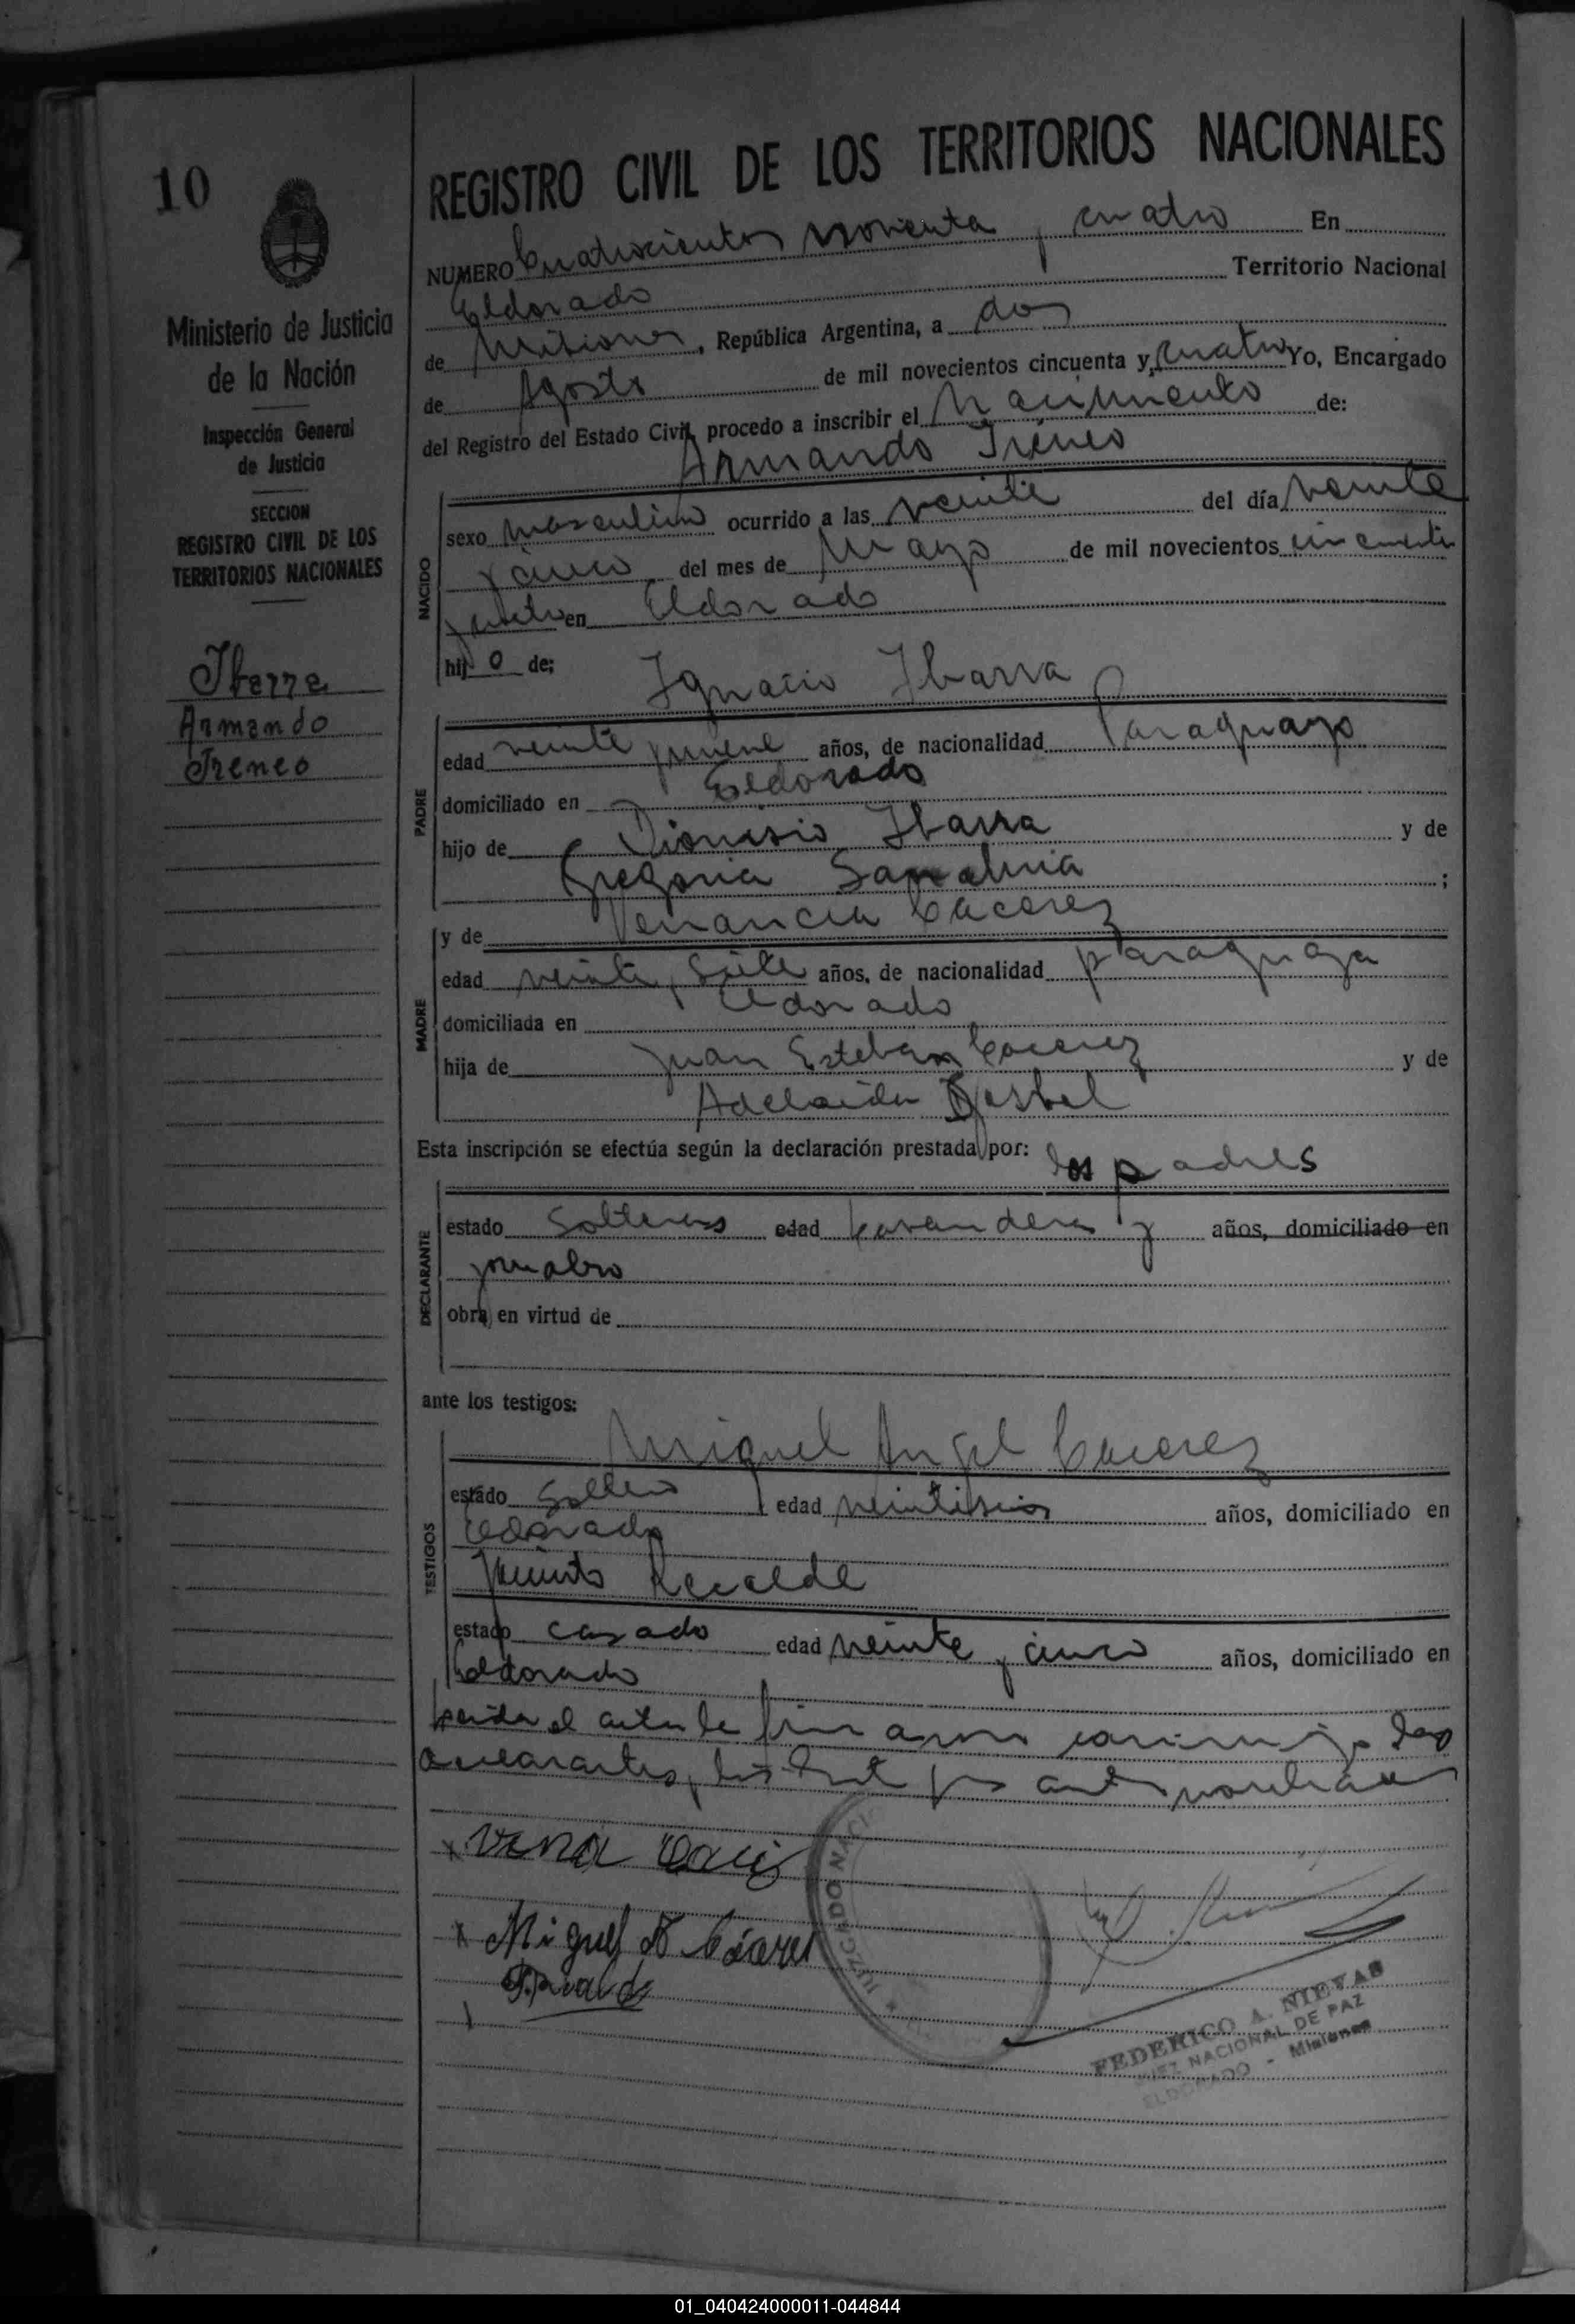 10
Ministerio de Justicia
de la Nación
Inspección General
de Justicia
SECCION
REGISTRO CIVIL DE LOS
TERRITORIOS NACIONALES
Ibarra
Armando
Ireneo
REGISTRO CIVIL DE LOS TERRITORIOS NACIONALES
NUMERO Cuatrocientos noventa y cuatro En
Eldorado Territorio Nacional
de Misiones, República Argentina, a dos
de Agosto de mil novecientos cincuenta y cuatro Yo, Encargado
del Registro del Estado Civil, procedo a inscribir el Nacimiento de:
Armando Ireneo
NACIDO
sexo masculino ocurrido a las veinte del día veinte
y cinco del mes de Mayo de mil novecientos cincuenta
y cuatro en Eldorado
hijo de; Ignacio Ibarra
PADRE
edad veinte y nueve años, de nacionalidad Paraguayo
domiciliado en Eldorado
hijo de Dionisio Ibarra y de
Gregoria ;
y de Venancia Caceres
MADRE
edad veinte y siete años, de nacionalidad paraguaya
domiciliada en Eldorado
hija de Juan Esteban Caceres y de
Adelaida
Esta inscripción se efectúa según la declaración prestada por: los padres
DECLARANTE
estado solteros edad lavandera y años, domiciliado en
obra en virtud de
ante los testigos:
TESTIGOS
Miguel Angel Caceres
estado soltero edad años, domiciliado en
Eldorado
Recalde
estado casado edad veinte y cinco años, domiciliado en
Eldorado
Leida el acta la
declarantes, los
Miguel A Cáceres
JUZGADO NACI
FEDERICO A. NIEVAS
JUEZ NACIONAL DE PAZ
ELDORADO - Misiones
01_040424000011-044844